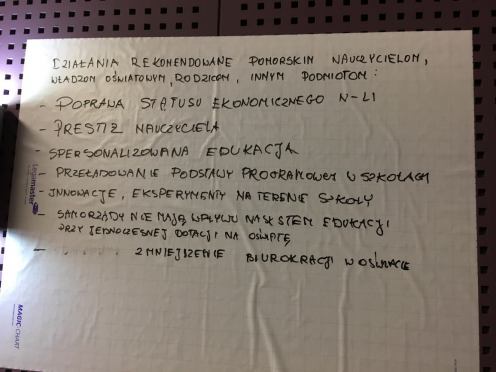 DZIAŁANIA REKOMENDOWANE POMORSKIM NAUCZYCIELOM,
WŁADZOM OŚWIATOWYM, RODZICOM, INNYM PODMIOTOM:
- POPRAWA STATUSU EKONOMICZNEGO N-LI
- PRESTIŻ NAUCZYCIELA
- SPERSONALIZOWANA EDUKACJA
- PRZEŁADOWANIE PODSTAWY PROGRAMOWEJ W SZKOŁACH
- INNOWACJE, EKSPERYMENTY NA TERENIE SZKOŁY
- SAMORZĄDY NIE MAJĄ WPŁYWU NA SYSTEM EDUKACJI
PRZY JEDNOCZESNEJ DOTACJI NA OŚWIATĘ
- ZMNIEJSZENIE BIUROKRACJI W OŚWIACIE
Legamaster
MAGIC-CHART